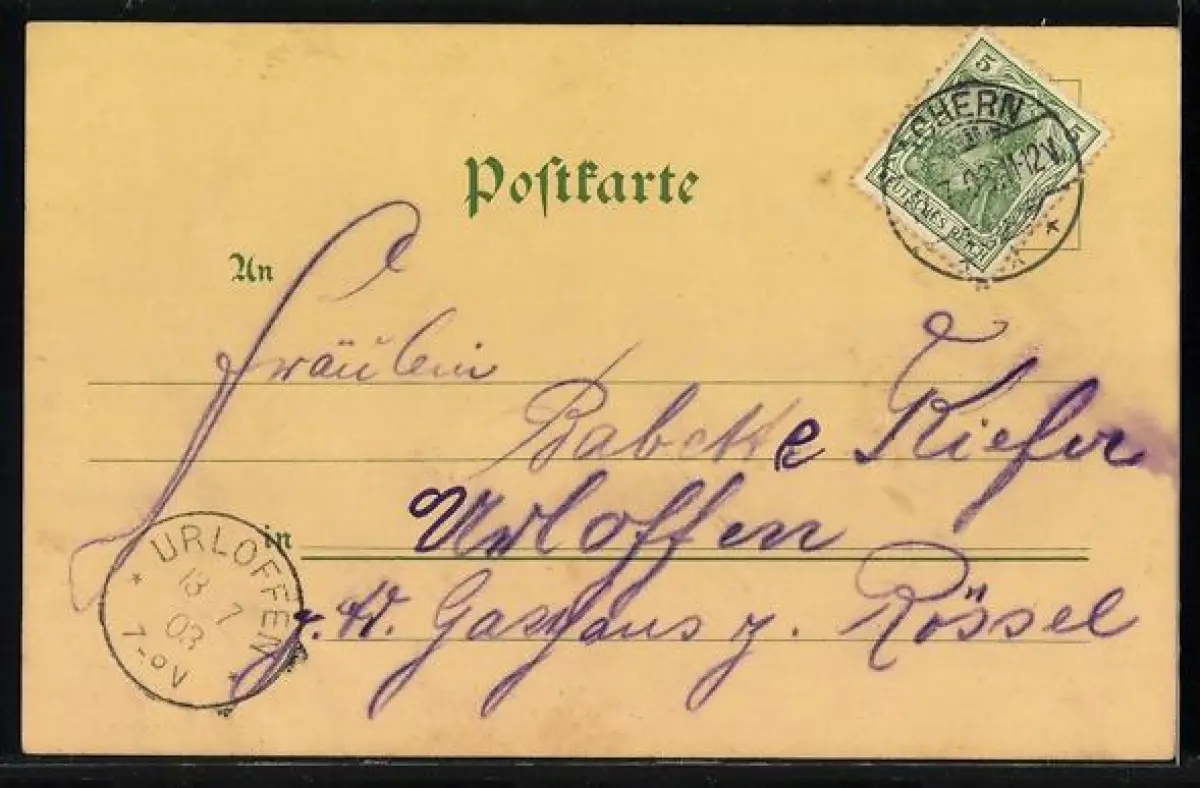 Postkarte
5
5
ACHERN
7. 03. 11-12V.
DEUTSCHES REICH
An
Fräulein
Babette Kiefer
in
Urloffen
Gasthaus z. Rössel
URLOFFEN
13 7
03
7-8V